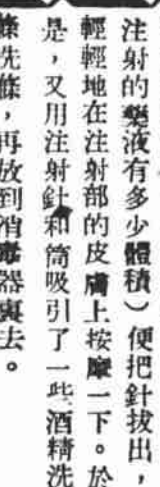 注射的藥液有多少體積）便把針拔出，
輕輕地在注射部的皮膚上按摩一下。於
是，又用注射針和筒吸引了一些酒精洗
滌洗滌，再放到消毒器裏去。